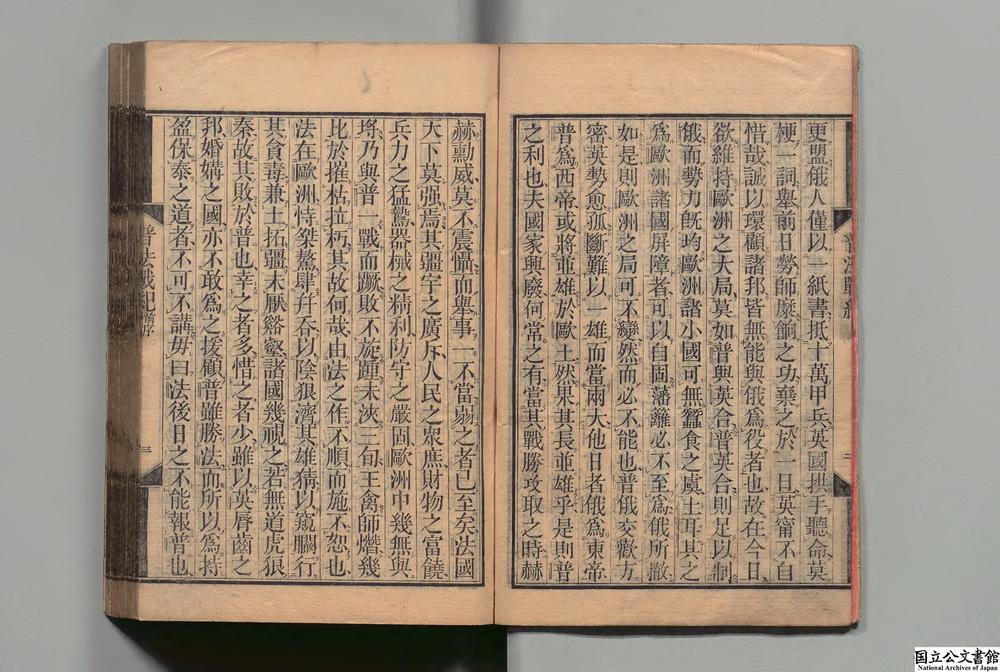 更盟俄人僅以一紙書抵十萬甲兵英國拱手聽命莫
梗一詞舉前日勞師糜餉之功棄之於一旦英甯不自
惜哉誠以環顧諸邦皆無能與俄爲役者也故在今日
欲維持歐洲之大局莫如普與英合普英合則足以制
俄而勢力旣均歐洲諸小國可無蠶食之虞土耳其之
爲歐洲諸國屏障者可以自固藩籬必不至爲俄所撤
如是則歐洲之局可不變然而必不能也普俄交歡方
密英勢愈孤斷難以一雄而當兩大他日者俄爲東帝
普爲西帝或將並雄於歐土然果其長並雄乎是則普
之利也夫國家興廢何常之有當其戰勝攻取之時赫
赫勳威莫不震懾而舉事一不當弱之者已至矣法國
天下莫强焉其疆宇之廣斥人民之衆庶財物之富饒
兵力之猛鷙器械之精利防守之嚴固歐洲中幾無與
埒乃與普一戰而蹶敗不旋踵未浹三旬王禽師熸幾
比於摧枯拉朽其故何哉由法之作不順而施不恕也
法在歐洲恃桀鰲肆幷吞以陰狼濟其雄猜以窺矙行
其貪毒兼土拓疆未厭谿壑諸國幾視之若無道虎狼
秦故其敗於普也幸之者多惜之者少雖以英脣齒之
邦婚媾之國亦不敢爲之援顧普雖勝法而所以爲持
盈保泰之道者不可不講毋曰法後日之不能報普也
普法戰紀 前序
三
国立公文書館
National Archives of Japan